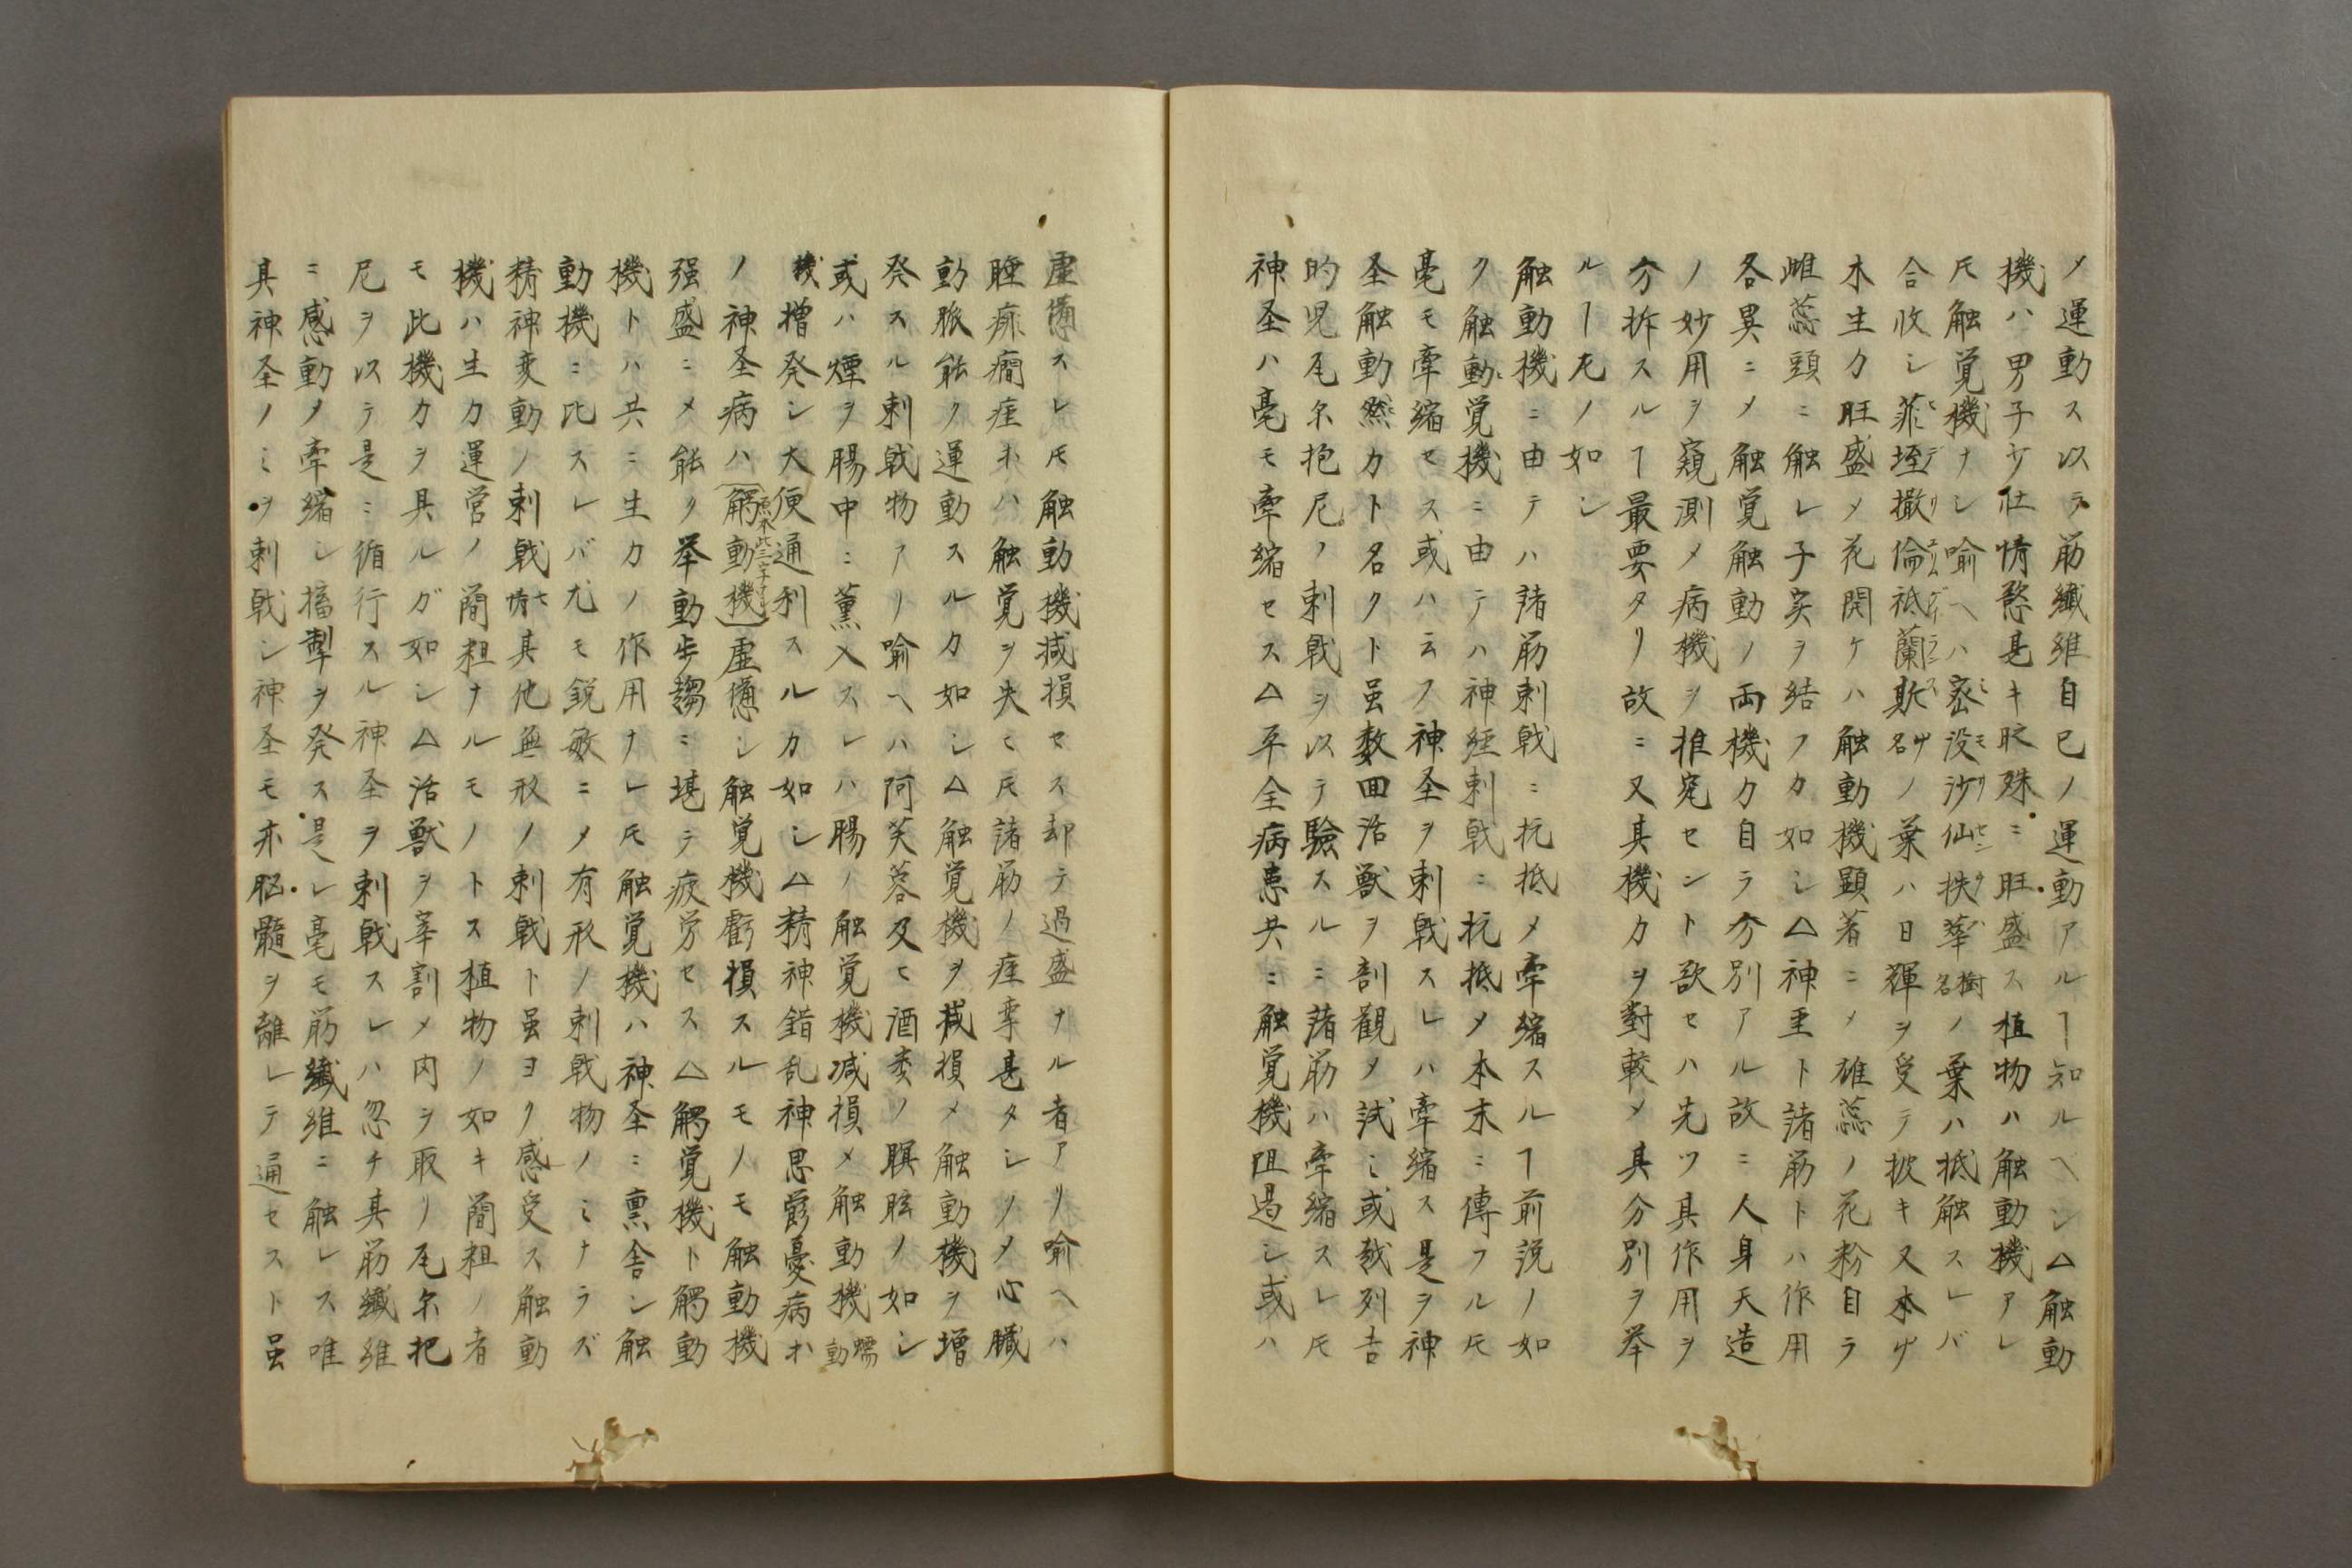 メ運動ス以テ筋纖維自己ノ運動アルヿ知ルヘシ△触動
機ハ男子少仕情慾甚キ䏣殊ニ旺盛ス植物ハ触動機アレ
𪜈触覚機ナシ喻ヘハ密没沙仙扶華樹名ノ葉ハ抵触スレバ
合收シ菲垤撒倫祗蘭斯艸名ノ葉ハ日輝ヲ受テ披キ又本艸
木生力旺盛メ花開ケハ触動機顕著ニメ雄蕊ノ花粉自ラ
雌蕊頭ニ触レ子実ヲ結フカ如シ△神圣ト諸筋トハ作用
各異ニメ触覚触動ノ両機力自ラ分別アル故ニ人身天造
ノ妙用ヲ窺測メ病機ヲ推究セント欲セハ先ツ其作用ヲ
分拆スルヿ最要タリ故ニ又其機力ヲ對較メ其分別ヲ挙
ルヿ左ノ如シ
触動機ニ由テハ諸筋刺戟ニ抗抵メ牽縮スルヿ前説ノ如
ク触動覚機ニ由テハ神経刺戟ニ抗抵メ本末ニ傳フル𪜈
毫モ牽縮セス或ハ云フ神圣ヲ刺戟スレハ牽縮ス是ヲ神
圣触動然力ト名クト虽数回活獣ヲ剖観メ試ミ或越列吉
的児尾尓抱尼ノ刺戟ヲ以テ驗スルニ諸筋ハ牽縮スレ𪜈
神圣ハ毫モ牽縮セス△平全病患共ニ触覚機阻遏シ或ハ
虚憊スレ𪜈触動機减損セス却テ過盛ナル者アリ喻ヘハ
睡痱癇痙ホハ触覚ヲ失ヒ𪜈諸筋ノ痙挛甚タシクメ心臓
動脈能ク運動スルカ如シ△触覚機ヲ减損メ触動機ヲ増
発スル刺戟物アリ喻ヘハ阿芙蓉及ヒ酒类ノ瞑眩ノ如シ
或ハ煙ヲ腸中ニ薰入スレハ腸ノ触覚機减損メ触動機蠕動
機増発シ大便通利スルカ如シ△精神錯乱神思鬱憂病ホ
ノ神圣病ハ(觸動機)原本此三字ナシ虚憊シ触覚機虧損スルモノモ触動機
强盛ニメ能ク举動步趨ニ堪テ疲労セス△觸覚機ト觸動
機トハ共ニ生力ノ作用ナレ𪜈触覚機ハ神圣ニ禀舎シ触
動機ニ比スレバ尤モ鋭敏ニメ有形ノ刺戟物ノミナラズ
精神变動ノ刺戟七情其他無形ノ刺戟ト虽ヨク感受ス触動
機ハ生力運営ノ簡粗ナルモノトス植物ノ如キ簡粗ノ者
モ此機力ヲ具ルガ如シ△活獣ヲ宰割メ肉ヲ取リ尾尓把
尼ヲ以テ是ニ循行スル神圣ヲ刺戟スレハ忽チ其筋纖維
ニ感動メ牽縮シ搐掣ヲ発ス是レ毫モ筋纖維ニ触レス唯
其神圣ノミヲ刺戟シ神圣モ亦脳髓ヲ離レテ通セスト虽